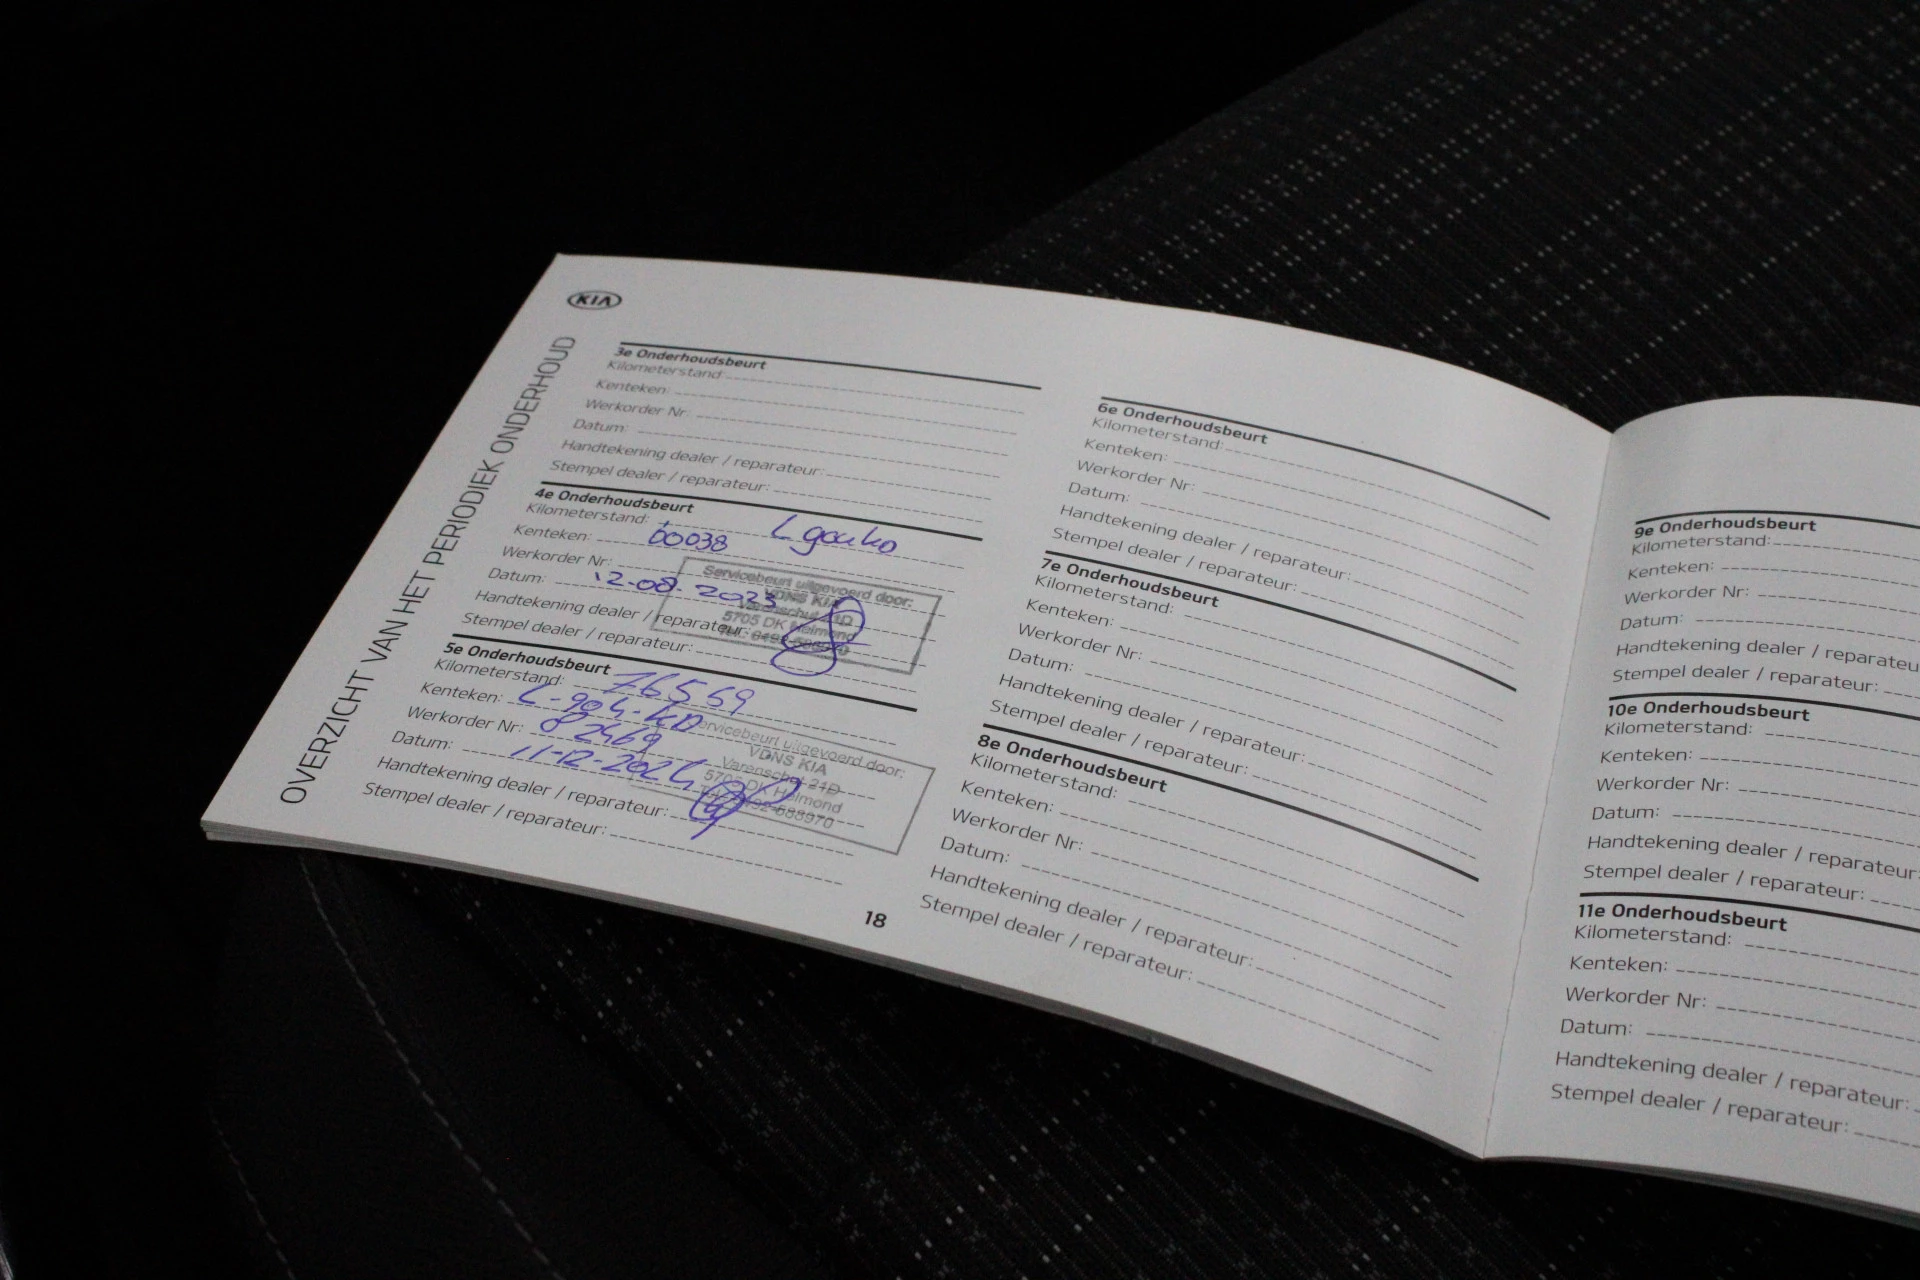 KIA
OVERZICHT VAN HET PERIODIEK ONDERHOUD
3e Onderhoudsbeurt
Kilometerstand:
Kenteken:
Werkorder Nr:
Datum:
Handtekening dealer / reparateur:
Stempel dealer / reparateur:
4e Onderhoudsbeurt
Kilometerstand:
Kenteken: 60038
Werkorder Nr:
Datum: 12-08-2023
Handtekening dealer / reparateur:
Stempel dealer / reparateur:
Servicebeurt uitgevoerd door:
VDNS KIA
Varenschut 21D
5705 DK Helmond
Tel.: 0492-588970
5e Onderhoudsbeurt
Kilometerstand: 76569
Kenteken: L-904-KD
Werkorder Nr: 82469
Datum: 11-12-2024
Handtekening dealer / reparateur:
Stempel dealer / reparateur:
Servicebeurt uitgevoerd door:
VDNS KIA
Varenschut 21D
5705 DK Helmond
Tel.: 0492-588970
18
6e Onderhoudsbeurt
Kilometerstand:
Kenteken:
Werkorder Nr:
Datum:
Handtekening dealer / reparateur:
Stempel dealer / reparateur:
7e Onderhoudsbeurt
Kilometerstand:
Kenteken:
Werkorder Nr:
Datum:
Handtekening dealer / reparateur:
Stempel dealer / reparateur:
8e Onderhoudsbeurt
Kilometerstand:
Kenteken:
Werkorder Nr:
Datum:
Handtekening dealer / reparateur:
Stempel dealer / reparateur:
9e Onderhoudsbeurt
Kilometerstand:
Kenteken:
Werkorder Nr:
Datum:
Handtekening dealer / reparateu
Stempel dealer / reparateur:
10e Onderhoudsbeurt
Kilometerstand:
Kenteken:
Werkorder Nr:
Datum:
Handtekening dealer / reparateur:
Stempel dealer / reparateur:
11e Onderhoudsbeurt
Kilometerstand:
Kenteken:
Werkorder Nr:
Datum:
Handtekening dealer / reparateur:
Stempel dealer / reparateur: